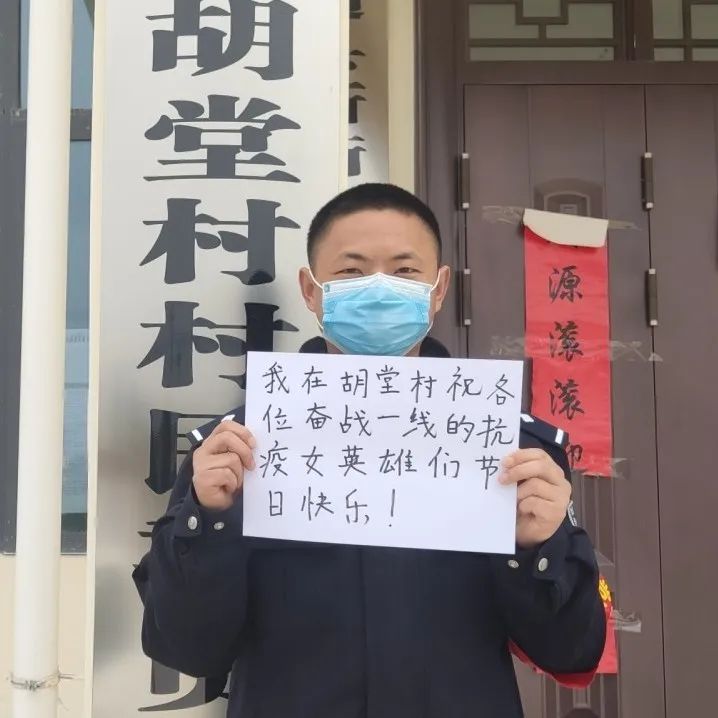 胡堂村村民
我在胡堂村祝各
位奋战一线的抗
疫女英雄们节
日快乐！
源滚滚迎